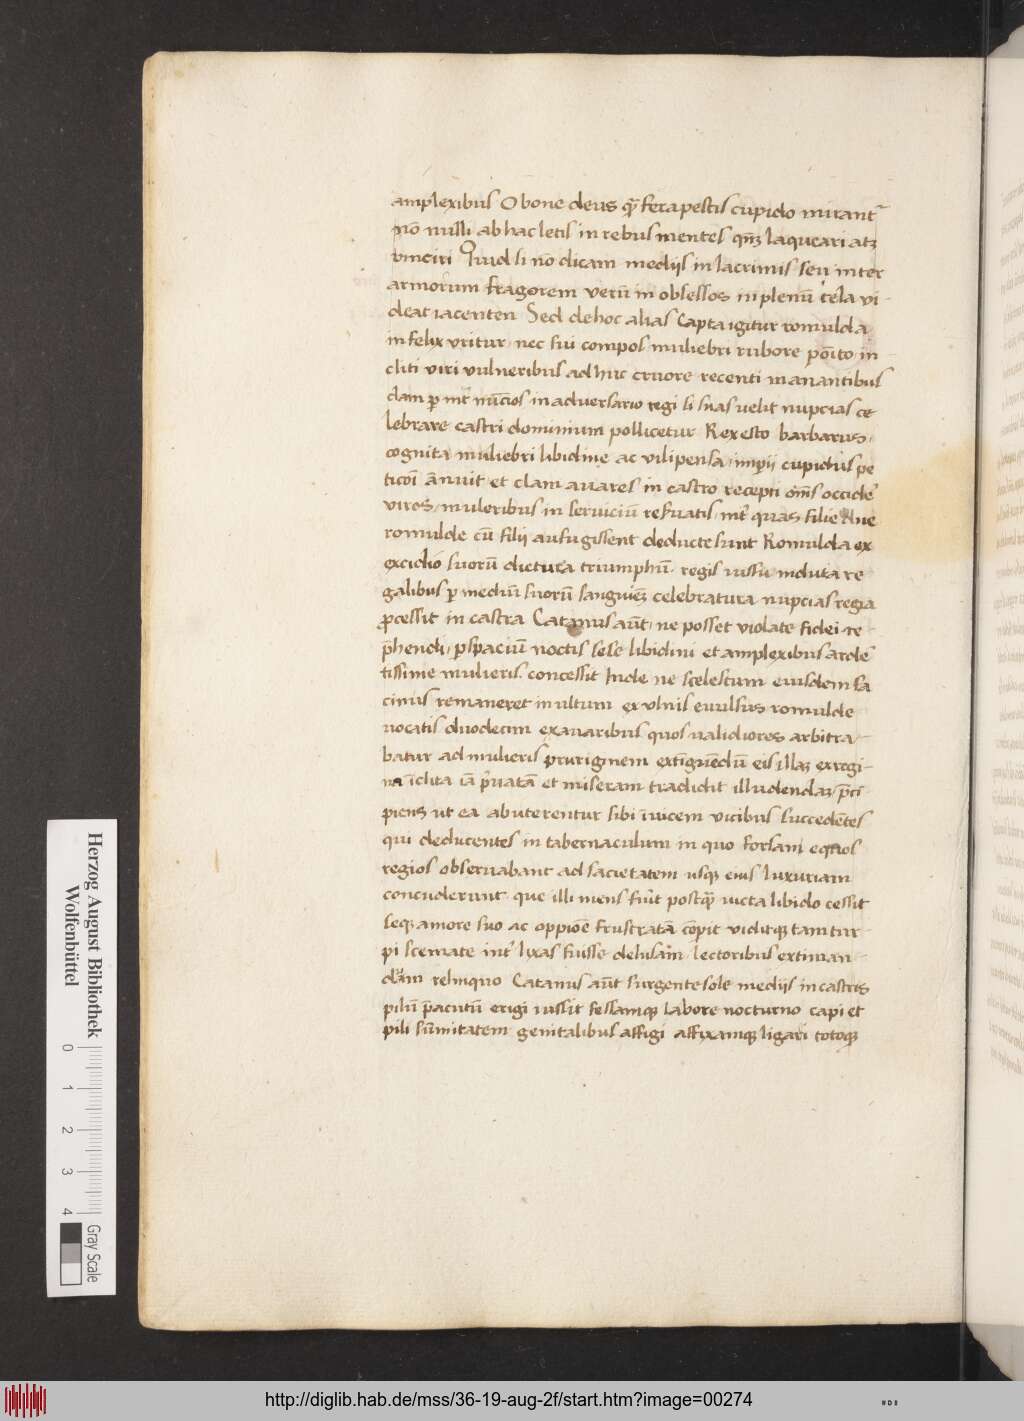 amplexibus O bone deus q̄ȝ fera pestis cupido mirant᷑
nō nulli ab hac letis in rebus mentes qn̄ȝ laqueari atȝ
vinciri Quid si nō dicam medijs in lacrimis seu inter
armorum fragorem verū in obsessos in plenū tela vi-
deat iacenten Sed de hoc alias Capta igitur romulda
infelix vritur nec sui compos muliebri rubore poīto in
cliti viri vulneribus ad huc cruore recenti manantibus
clam ꝑ int̄ nūcios in adversario regi si suas velit nupcias ce
lebrare castri dominium pollicetur Rex esto barbarus
cognita muliebri libidine ac vilipensa impij cupidus pe
ticōi ānuit et clam auares in castro recepti om̄s occidē
viros muleribus in serviciū refvatis int̄ quas filie due
romulde cū filij aufugissent deducte sunt Romulda ex
excidio suorū dictura triumphū regis iussu induta re
galibus ꝑ mediū suorū sanguīeȝ celebratura nupcias regia
ꝓcessit in castra Catanus aūt ne posset violate fidei re
p̄hendi ꝑ spaciū noctis sese libidini et amplexibus ardē
tissime mulieris concessit Inde ne scelestum eiusdem fa
cinus remaneret inultum ex vlnis evulsus romulde
vocatis duodecim ex avaribus quos validiores arbitra
batur ad mulieris pruriginem extīguēdū eis illaȝ ex regi-
na īclita iā p̄uatā et miseram tradidit illudendaȝ p̄ci
piens ut ea abuterentur sibi īuicem vicibus succedētes
qui deducentes in tabernaculum in quo forsani equos
regios observabant ad sacietatem usqȝ eius luxuriam
concuderunt que illi mens fuit postq̄ȝ victa libido cessit
seqȝ amore suo ac oppiōe frustratā cōpit viditqȝ tam tur-
pi scemate int̄ lixas fuisse delusam lectoribus extiman-
dam relinquo Catanus aūt surgente sole medijs in castris
pilū p̄acutū erigi iussit fessamqȝ labore nocturno capi et
pili sūmitatem genitalibus affigi affixamqȝ ligari totoqȝ
Herzog August Bibliothek
Wolfenbüttel
0 1 2 3 4
Gray Scale
http://diglib.hab.de/mss/36-19-aug-2f/start.htm?image=00274